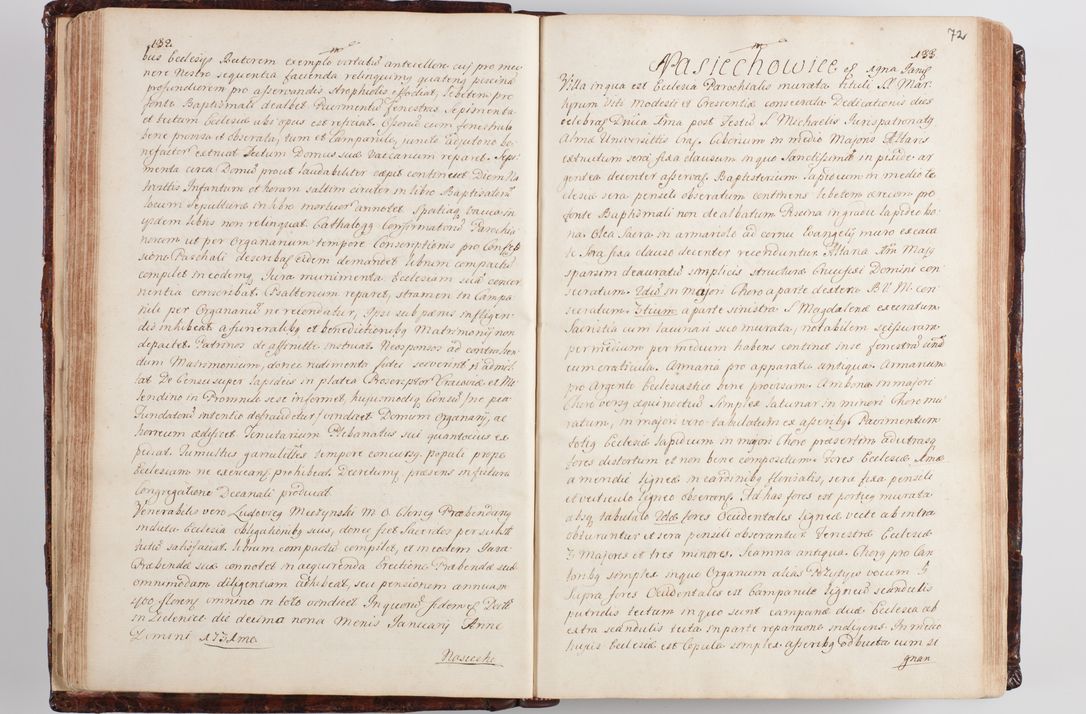 132.
bus Ecclesijs Autorem exemplo virtutis antecellere cui pro mu
nere Nostro sequentia facienda relinquimq quatenq piscina
profundiorem pro asservandis strophiolis effodiat, lebetem pro
fonte Baptismali dealbet Pavimentū fenestras Sepimenta
et tectum Ecclesiæ ubi opus est reficiat. Ossoriū cum fenestrula
bene provisa et obserata, tum et Campanile, unito adjutorio be
nefactor exstruat Tectum Domus suæ Vaccarium reparet. Sepi
menta circa Domū prout laudabiliter cæpit continuet Diem Na
tivittis Infantum et horam saltim circiter in libro Baptisator
locum Sepulturæ in libro mortuor annotet Spatiaq vacua in
ijsdem libris non relinquat Cathalogq Confirmator Parochia
norum ut per Organarium tempore Conscriptionis pro Confes
sione Paschali describat eidem demandet librum compactū
compilet in eodemq Jura munimenta Ecclesiam suā concer
nentia conscribat. Psalterium reparet, stramen in Campa
nile per Organariū ne recondatur, Ipse sub pænis infligen
dis inhibeat a funeralibq et benedictionibq Matrimonij non
depactet. Patrinos de affinitte instruat. Neosponsos ad contrahen
dum Matrimonium, donec rudimenta fidei sciverint n admit
tat De Censu super lapideis in platea Proscriptor Cracoviæ et Mo
lendino in Promnik se se informet, hujusmodiq Censū (ne pia
Fundatorū intentio defraudetur) vendicet Domum Organarij, ac
horreum ædificet Tenutarium Plebanatus sui quantocius ex
piriat. Tumultus garrulittes tempore concursq populi prope
Ecclesiam ne exerceanq prohibeat. Decretumq præsens in futura
Congregatione Decanali producat
Venerabilis vero Ludovicq Meszynski M. O. Clericq Præbendariq
induta Ecclesia obligationibq suis, donec fiet Sacerdos per substi
tutū satisfaciat. librum compactū compilet, et in eodem Jura
Præbendæ suæ connotet in acquirenda Erectione Præbendæ suæ
omnimodam diligentiam adhibeat, seu pensionem annuam
400 floreng omnino in toto vendicet In quorū fidem etc Datt
in Zielenice die decima nona Mensis Januarij Anno
Domini 1731mo.
Nasiecho
72
133
Nasiechowice 98 19na Januaŕ
Villa in qua est Ecclesia Parochialis murata tituli SS Mar
tyrum Viti Modesti et Crescentiæ consecrata Dedicationis dies
celebraq Dnica 1ma post Festū S Michaelis Jurispatronatq
Almæ Universittis Crac. Ciborium in medio Majoris Altaris
extructum sera fixa clausum in quo Sanctissimū in pixide ar
gentea decenter asservaq. Baptisterium lapideum in medio Ec
clesiæ sera pensili obseratum continens lebetem æreum pro
fonte Baptismali non dealbatum Piscina in gradu lapideo bo
na. Olea Sacra in armariolo ad cornu Evangelij muro excava
to sera fixa clauso decenter reconduntur. Altaria 3ria Majq
sparsim deauratū simplicis structuræ Crucifixi Domini con
secratum. 2dū in majori Choro a parte dextera B.V.M. con
secratum. 3tium a parte sinistra S Magdalenæ execratum
Sacristia cum lacunari suo murata, notabilem scissuram
per medium per medium habens continet in se fenestrā unā
cum craticula. Armaria pro apparatu antiqua. Armarium
pro Argento Ecclesiastico bene provisum. Ambona in majori
Choro versq æquinoctiū simplex Lacunar in minori Choro mu
ratum, in majori vero tabulatum ex asseribq. Pavimentum
totiq Ecclesiæ lapideum in majori Choro præsertim ad utrasq
fores distortum et non bene compositum. Fores Ecclesiæ 1mæ
a meridie ligneæ in cardinibq florisalis, sera fixa pensili
et vecticulo ligneo obseranq. Ad has fores est porticq murata
absq tabulato 2dæ fores Occidentales ligneæ vecte ab intra
obdurantur et sera pensili obserantur. Fenestræ Ecclesiæ
7 Majores et tres minores. Scamna antiqua. Chorq pro Can
toribq simplex in quo Organum alias Pozytyw vocum 7
Supra fores Occidentales est Campanile ligneū scandulis
putridis tectum in quo sunt campanæ duæ. Ecclesia ab
extra scandulis tecta in parte reparatione indigens. In medio
hujus Ecclesiæ est Cupula simplex asseribq obducta cum si
gnan